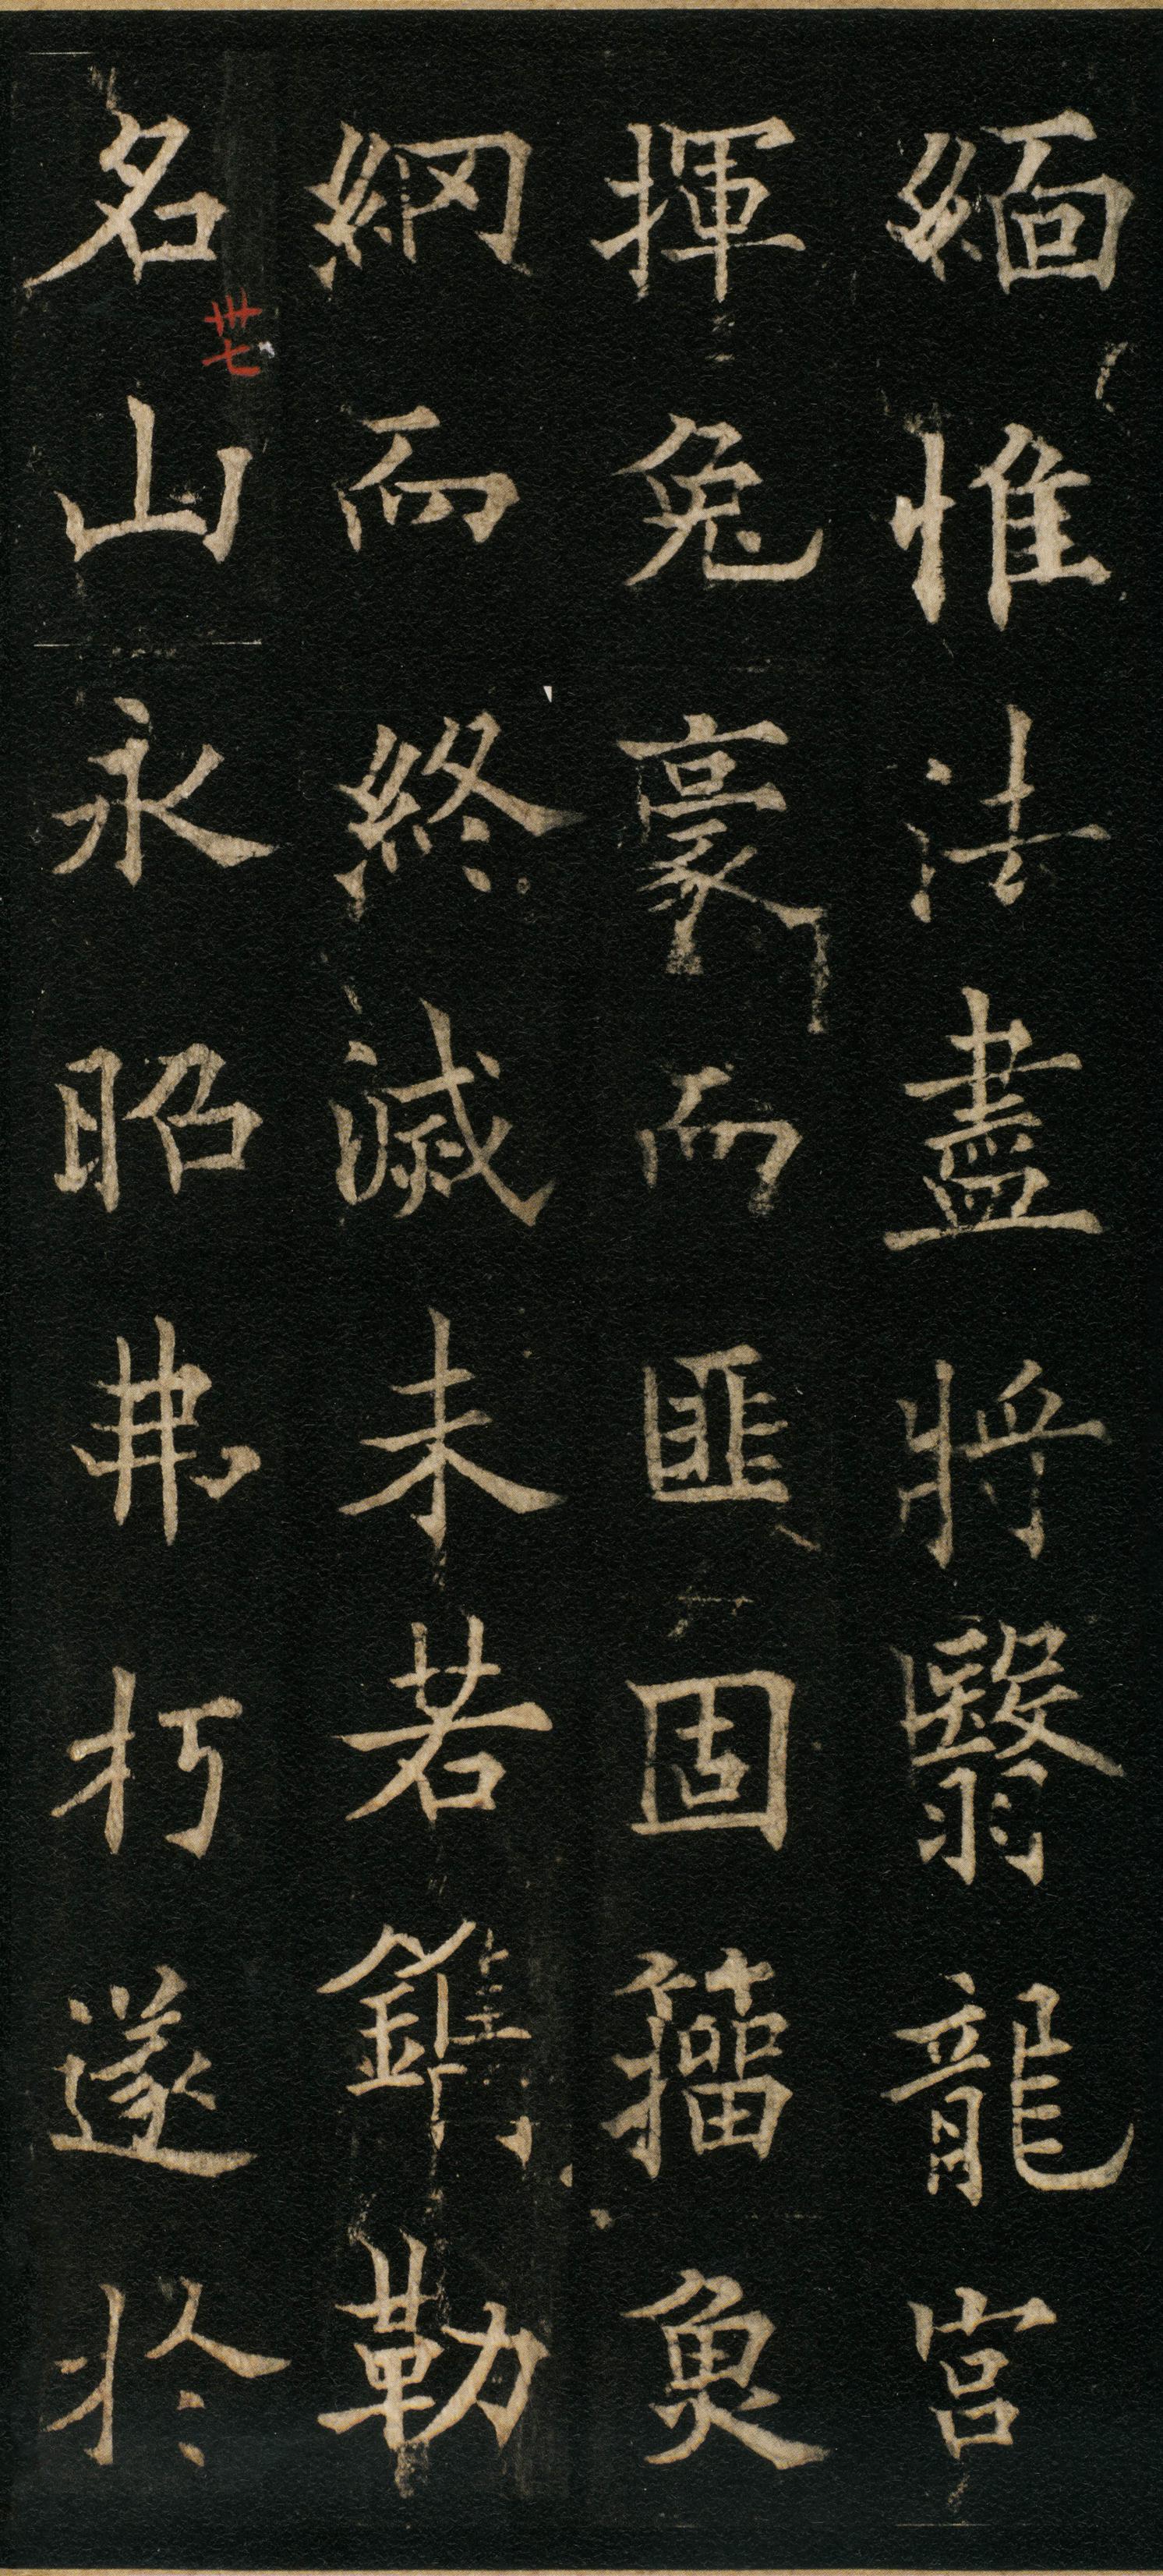 緬惟法盡將翳龍宮
揮兔豪而匪固籀魚
網而終滅未若鐫勒
名山永昭弗朽遂於
卅七